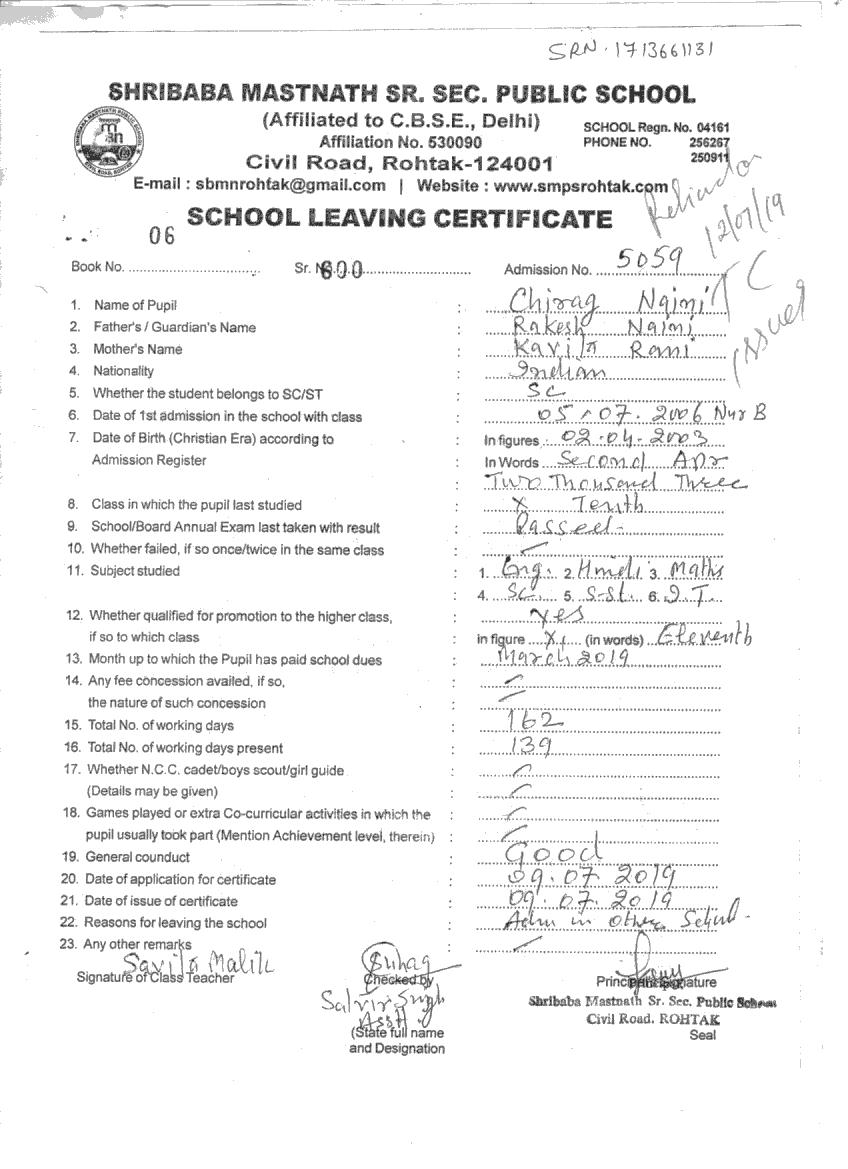 SRN. 1713661131
SHRIBABA MASTNATH SR. SEC. PUBLIC SCHOOL
(Affiliated to C.B.S.E., Delhi)
Affiliation No. 530090
SCHOOL Regn. No. 04161
PHONE NO. 256267
250911
Civil Road, Rohtak-124001
E-mail : sbmnrohtak@gmail.com | Website : www.smpsrohtak.com
SCHOOL LEAVING CERTIFICATE
12/07/19
TC
issued
Book No. 06 Sr. No. 600 Admission No. 5059
1. Name of Pupil : Chirag Naimi
2. Father's / Guardian's Name : Rakesh Naimi
3. Mother's Name : Kavita Rani
4. Nationality : Indian
5. Whether the student belongs to SC/ST : SC
6. Date of 1st admission in the school with class : 05.07.2006 Nur B
7. Date of Birth (Christian Era) according to : In figures 02.04.2003
Admission Register : In Words Second Apr
Two Thousand Three
8. Class in which the pupil last studied : X Tenth
9. School/Board Annual Exam last taken with result : Passed
10. Whether failed, if so once/twice in the same class :
11. Subject studied : 1. Eng. 2. Hindi 3. Maths
: 4. Sc. 5. S-st. 6. I.T.
12. Whether qualified for promotion to the higher class, : Yes
if so to which class : in figure XI (in words) Eleventh
13. Month up to which the Pupil has paid school dues : March 2019
14. Any fee concession availed, if so, :
the nature of such concession :
15. Total No. of working days : 162
16. Total No. of working days present : 139
17. Whether N.C.C. cadet/boys scout/girl guide :
(Details may be given) :
18. Games played or extra Co-curricular activities in which the :
pupil usually took part (Mention Achievement level, therein) :
19. General counduct : Good
20. Date of application for certificate : 09.07.2019
21. Date of issue of certificate : 09.07.2019
22. Reasons for leaving the school : Adm in other School
23. Any other remarks :
Savita Malik
Signature of Class Teacher
Suhag
Checked by
Principal Signature
Satvir Singh
Asstt
(State full name
and Designation
Shribaba Mastnath Sr. Sec. Public School
Civil Road. ROHTAK
Seal